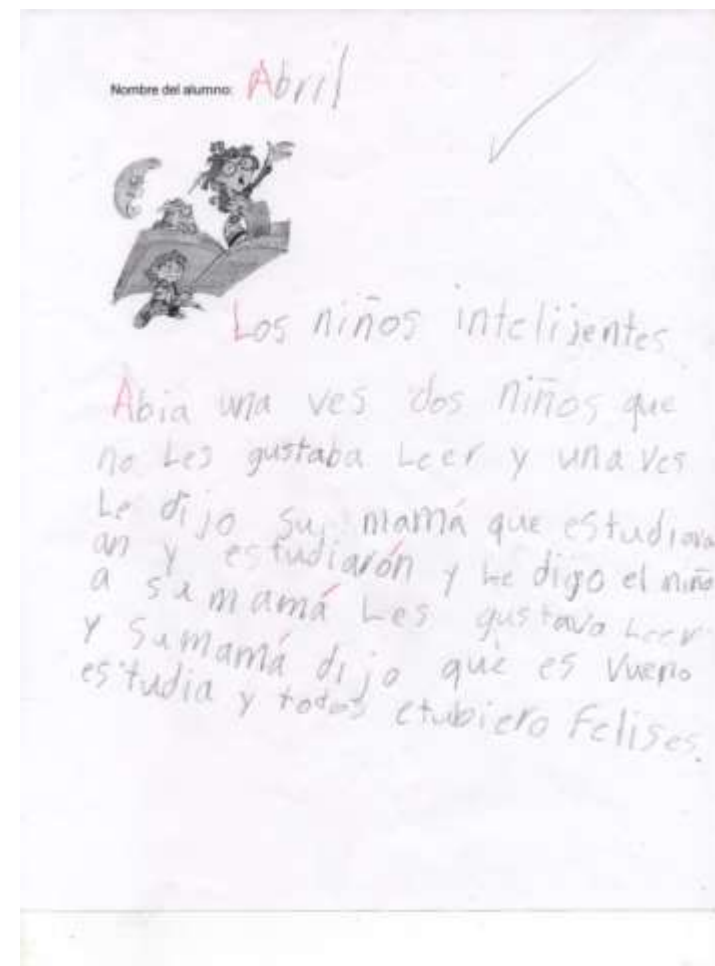 Nombre del alumno: Abril
Los niños intelijentes
Abia una ves dos niños que
no Les gustaba Leer y una ves
Le dijo su mamá que estudiava
an y estudiarón y Le digo el niño
a su mamá Les gustavo Leer
y su mamá dijo que es vueno
estudia y todos etubiero Felises.